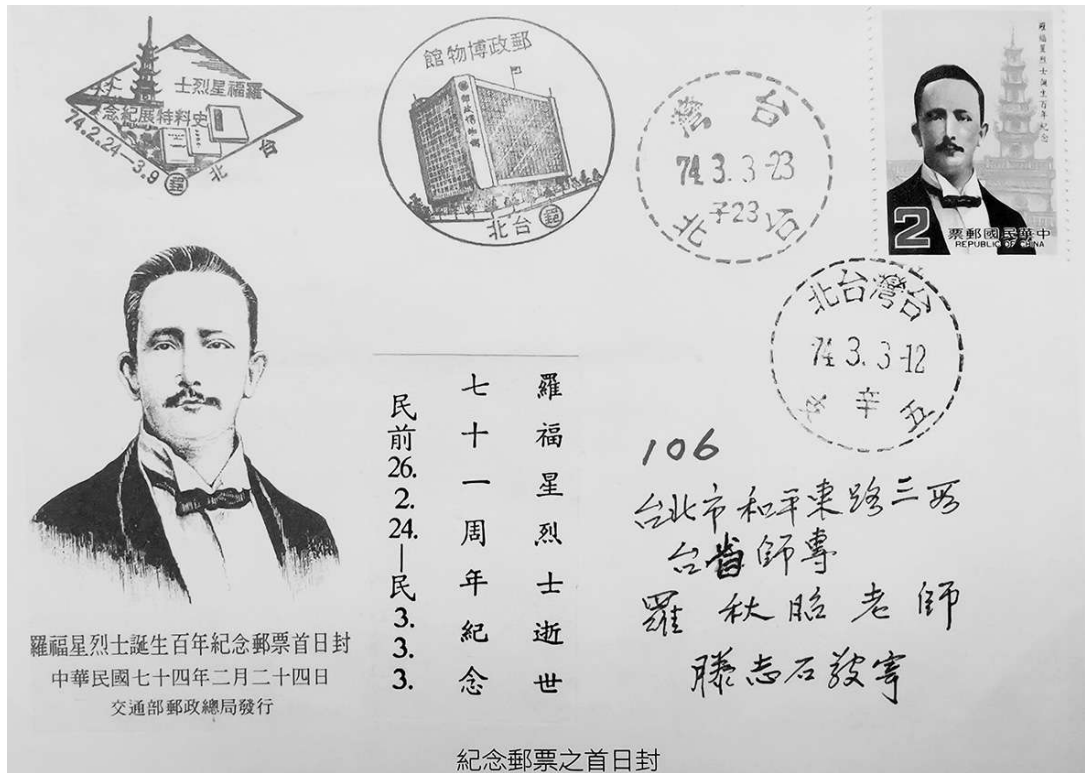 羅福星烈士
史料特展紀念
74.2.24—3.9
台北
郵政博物館
台北
台灣
74.3.3-23
子23
台北
羅福星烈士誕生百年紀念
2
中華民國郵票
REPUBLIC OF CHINA
台灣台北
74.3.3-12
羅福星烈士逝世
七十一周年紀念
民前26.2.24—民3.3.3.
106
台北市和平東路三段
台省師專
羅秋昭老師
滕志石敬寄
羅福星烈士誕生百年紀念郵票首日封
中華民國七十四年二月二十四日
交通部郵政總局發行
紀念郵票之首日封